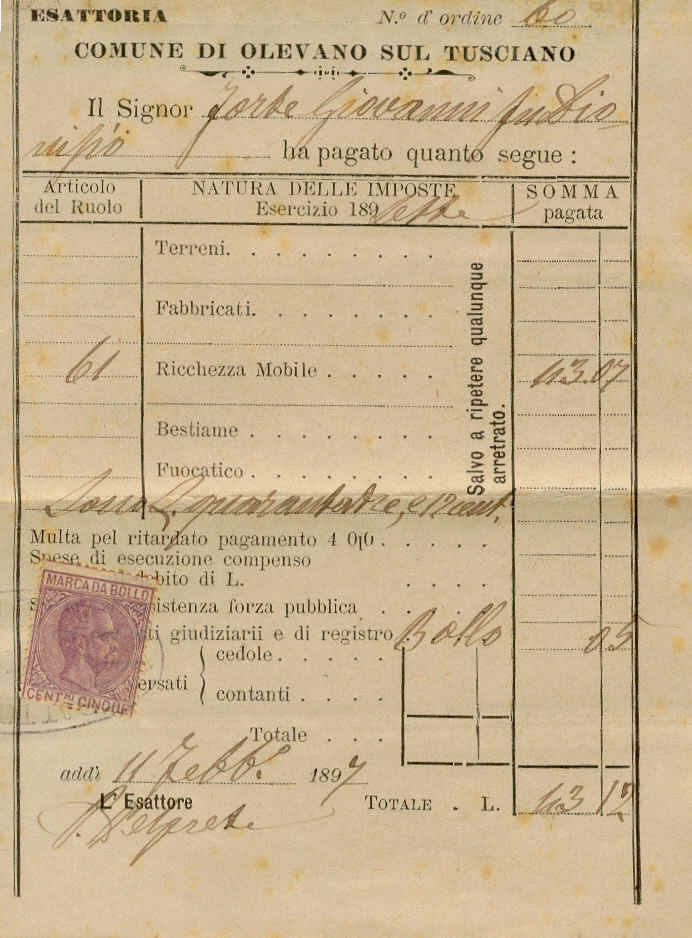 ESATTORIA N.º d'ordine 60
COMUNE DI OLEVANO SUL TUSCIANO
Il Signor Forte Giovanni fu Dio-
nisio ha pagato quanto segue :
Articolo del Ruolo
NATURA DELLE IMPOSTE
Esercizio 189 Sette
SOMMA pagata
Terreni. . . . . . . .
Fabbricati. . . . . . .
61 Ricchezza Mobile . . . . . 43.07
Bestiame . . . . . . .
Fuocatico . . . . . . .
Salvo a ripetere qualunque
arretrato.
Sono L. quarantatre, e 12 cent.
Multa pel ritardato pagamento 4 0|0 . . . . .
Spese di esecuzione compenso
debito di L. . . . .
istenza forza pubblica . . . .
ti giudiziarii e di registro Bollo 05
ersati { cedole . . . . .
contanti . . . .
Totale . . .
addì 11 Febb.º 1897
L' Esattore TOTALE . L. 43 12
Delprete
MARCA DA BOLLO
CENT.MI CINQUE